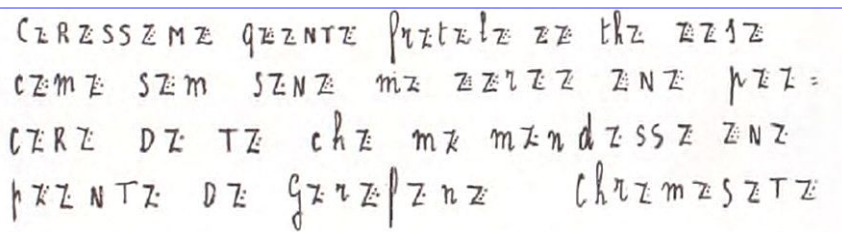 CzRzSSzMz qzzNTz frztzlz zz thz zzſz
czmz szm szNz mz zzrzz zNz pzz=
CZRZ DZ TZ chz mz mzndzssz zNz
pzzNTz DZ Gzrzfznz Chrzmzszтz